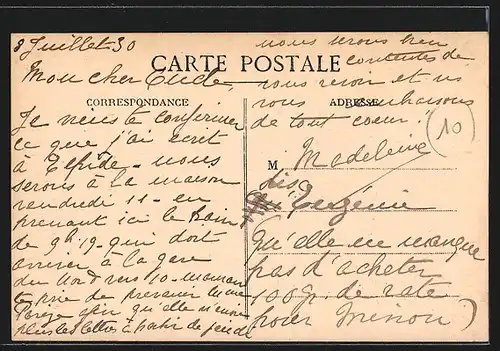 8 Juillet 30
CARTE POSTALE
Mon cher Oncle,
CORRESPONDANCE
Je viens te confirmer
ce que j'ai écrit
à Elfride - nous
serons à la maison
vendredi 11 - en
prenant ici le train
de 9h19 - qui doit
arriver à la gare
du Nord vers 10 - maman
te prie de prévenir Mme
afin qu'elle n'envoie
plus les lettres à partir de jeudi
nous serons bien
contentes de
vous revoir et
vous embrassons
ADRESSE
de tout coeur !
10
M
Madeleine
dis à
Eugénie
Qu'elle ne manque
pas d'acheter
100 gr. de rate
pour Minou